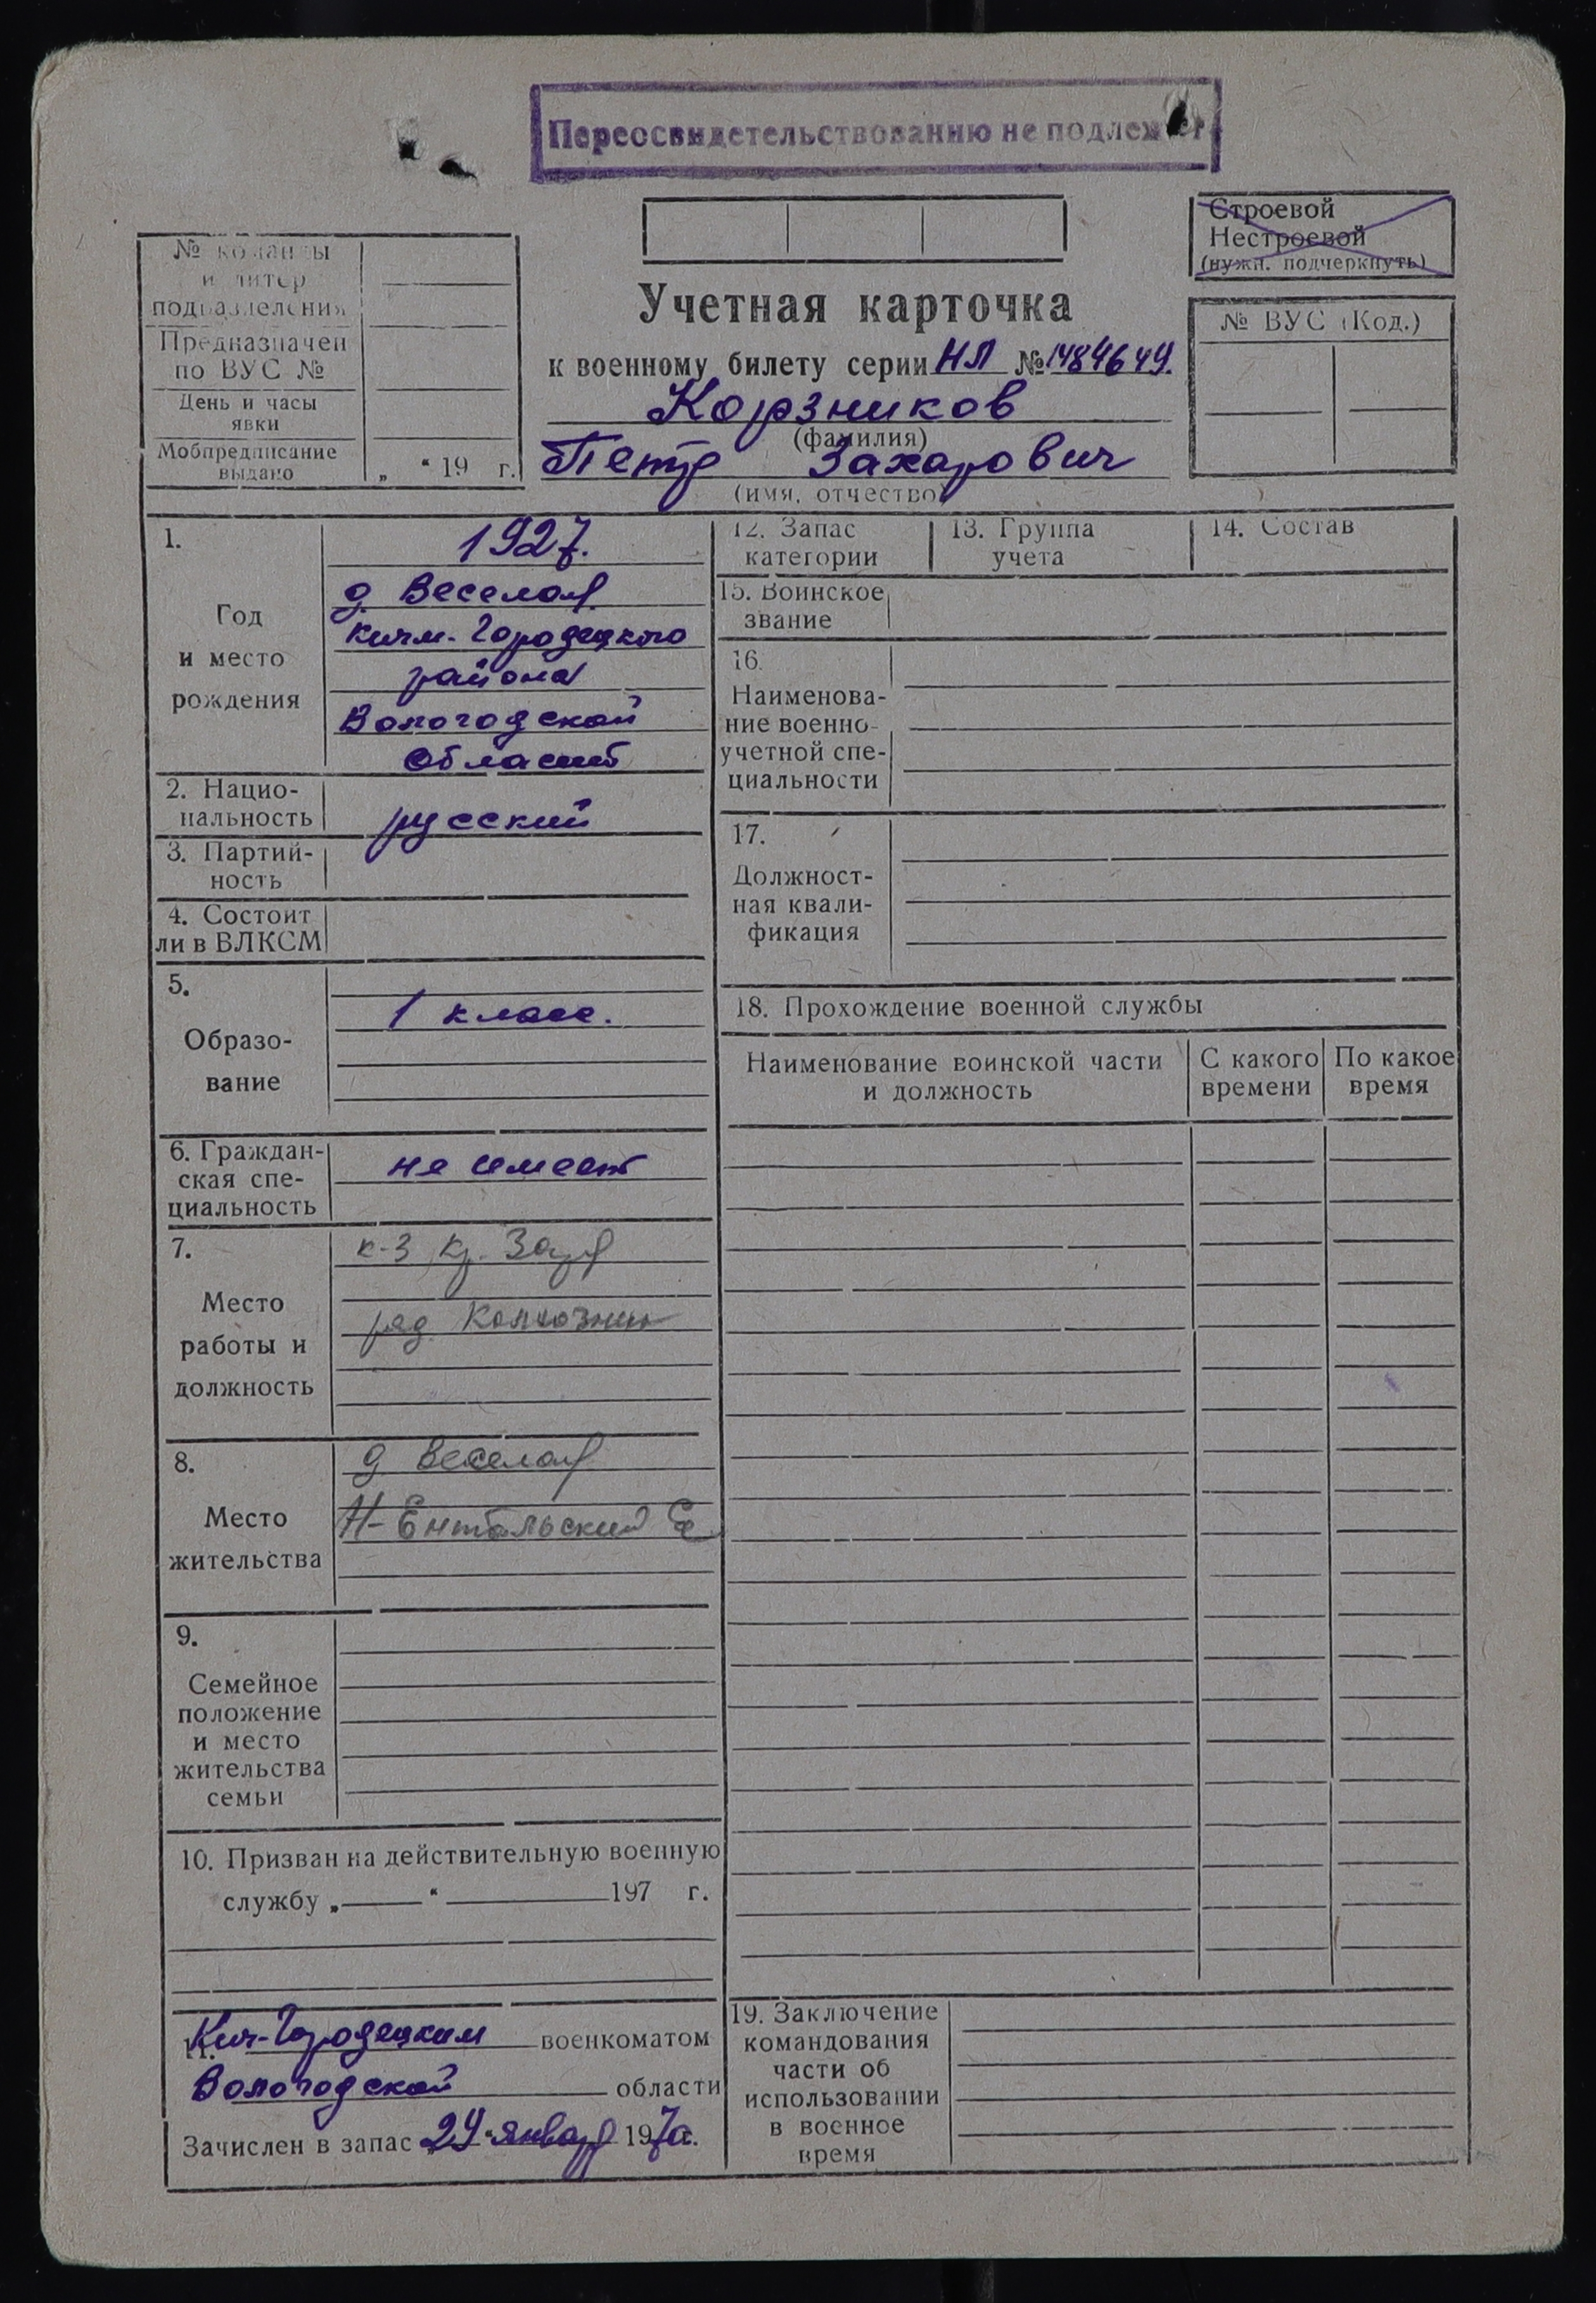 Переосвидетельствованию не подлежит
Строевой
Нестроевой
(нужн. подчеркнуть)
№ команды
и литер
подразделения
Предназначен
по ВУС №
День и часы
явки
Мобпредписание
выдано
„ “ 19 г.
Учетная карточка
к военному билету серии НЛ № 1484649.
Корзников
(фамилия)
Петр Захарович
(имя, отчество)
№ ВУС (Код.)
1.
Год
и место
рождения
1927.
д. Веселая
Кичм-Городецкого
района
Вологодской
области
2. Нацио-
нальность
русский
3. Партий-
ность
4. Состоит
ли в ВЛКСМ
5.
Образо-
вание
1 класс.
6. Граждан-
ская спе-
циальность
не имеет
7.
Место
работы и
должность
к-з Кр. Заря
ряд. колхозник
8.
Место
жительства
д Веселая
Н-Ентальский
9.
Семейное
положение
и место
жительства
семьи
10. Призван на действительную военную
службу „ “ 197 г.
11. Кич-Городецким военкоматом
Вологодской области
Зачислен в запас „24“ января 197 г.
12. Запас
категории
13. Группа
учета
14. Состав
15. Воинское
звание
16.
Наименова-
ние военно-
учетной спе-
циальности
17.
Должност-
ная квали-
фикация
18. Прохождение военной службы
Наименование воинской части
и должность
С какого
времени
По какое
время
19. Заключение
командования
части об
использовании
в военное
время